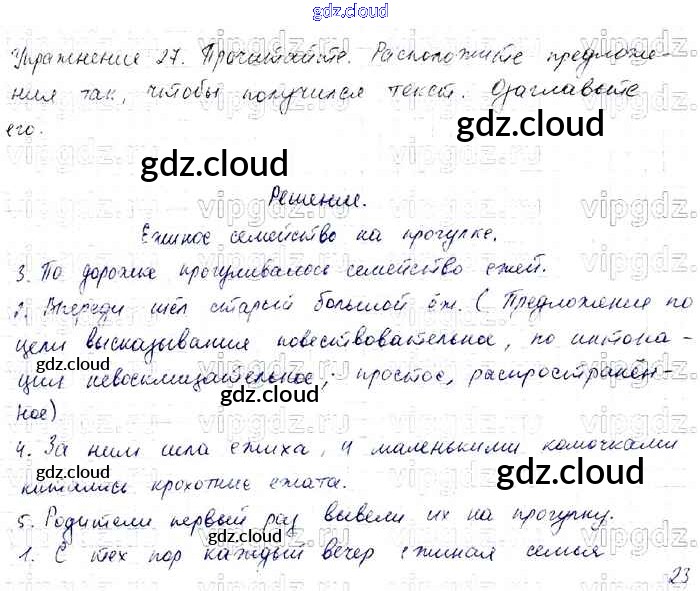 gdz.cloud
Упражнение 27. Прочитайте. Расположите предложе-
ния так, чтобы получился текст. Озаглавьте
его.
gdz.cloud
gdz.cloud
Решение.
Ежиное семейство на прогулке.
gdz.cloud
3. По дорожке прогуливалось семейство ежей.
2. Впереди шёл старый большой ёж. (Предложение по
цели высказывания повествовательное, по интона-
ции невосклицательное, простое, распространён-
gdz.cloud
gdz.cloud
ное)
4. За ним шла ежиха, и маленькими комочками
gdz.cloud
gdz.cloud
катились крохотные ежата.
5. Родители первый раз вывели их на прогулку.
gdz.cloud
1. С тех пор каждый вечер ежиная семья
23